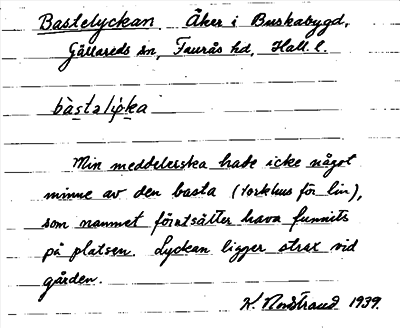 Bastelyckan. Åker i Buskabygd,
Gällareds sn, Faurås hd, Hall. l.
bàstalýka
Min meddelerska hade icke något
minne av den basta (torkhus för lin),
som namnet förutsätter hava funnits
på platsen. Lyckan ligger strax vid
gården.
K. Nordstrand 1939.